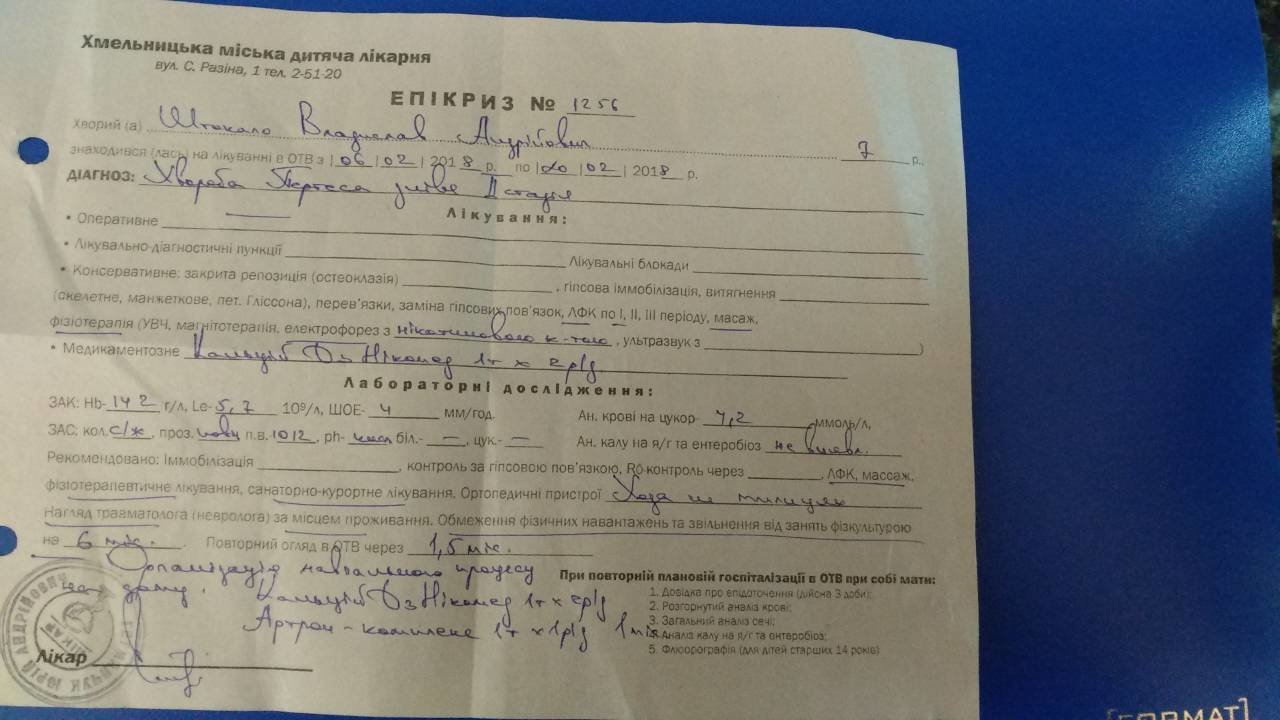 Хмельницька міська дитяча лікарня
вул. С. Разіна, 1 тел. 2-51-20
ЕПІКРИЗ № 1256
хворий (а) Штокало Владислав Андрійович 7 р.,
знаходився (лась) на лікуванні в ОТВ з |06|02| 2018 р. по |20|02| 2018 р.
ДІАГНОЗ: Хвороба Пертеса зліва II стадія
Лікування:
• Оперативне
• Лікувально-діагностичні пункції Лікувальні блокади
• Консервативне: закрита репозиція (остеоклазія) , гіпсова іммобілізація, витягнення
(скелетне, манжеткове, пет. Гліссона), перев'язки, заміна гіпсових пов'язок, ЛФК по І, ІІ, ІІІ періоду, масаж,
фізіотерапія (УВЧ, магнітотерапія, електрофорез з нікотиновою к-тою , ультразвук з )
• Медикаментозне Кальцій Д3 Нікомед 1т х 2р/д
Лабораторні дослідження:
ЗАК: Hb- 142 г/л, Le- 5,7 10⁹/л, ШОЕ- 4 мм/год. Ан. крові на цукор- 4,2 ммоль/л,
ЗАС: кол. с/ж , проз. повн п.в. 1012 , ph- кисл біл.- — , цук.- — Ан. калу на я/г та ентеробіоз не виявл.
Рекомендовано: Іммобілізація , контроль за гіпсовою пов'язкою, Ro-контроль через , ЛФК, массаж,
фізіотерапевтичне лікування, санаторно-курортне лікування. Ортопедичні пристрої Хода на милицях
Нагляд травматолога (невролога) за місцем проживання. Обмеження фізичних навантажень та звільнення від занять фізкультурою
на 6 міс. Повторний огляд в ОТВ через 1,5 міс.
Організація навчального процесу
на дому. Кальцій Д3 Нікомед 1т х 2р/д
Артрон-комплекс 1т х 1р/д 1 міс.
При повторній плановій госпіталізації в ОТВ при собі мати:
1. Довідка про епідоточення (дійсна 3 доби);
2. Розгорнутий аналіз крові;
3. Загальний аналіз сечі;
4. Аналіз калу на я/г та ентеробіоз;
5. Флюорографія (для дітей старших 14 років)
Лікар
ЮРІЙ АНДРІЙОВИЧ
ЛІКАР
[FORMAT]